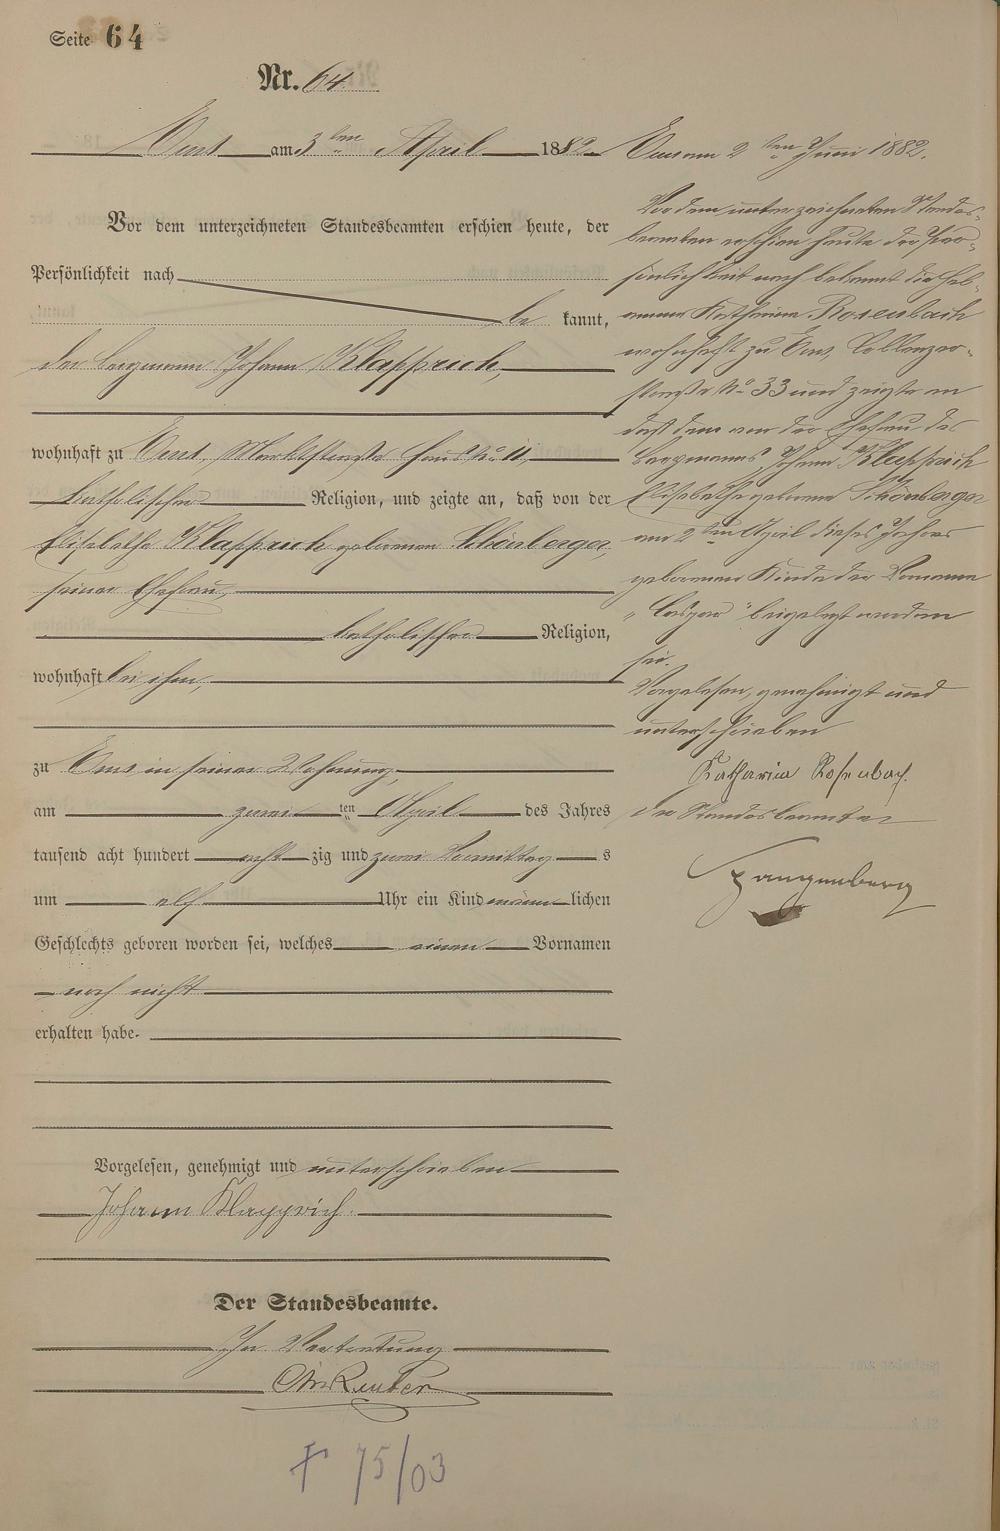 Seite 64
Nr. 64
Ems am 3ten April 1882
Vor dem unterzeichneten Standesbeamten erschien heute, der
Persönlichkeit nach
be kannt,
der Bergmann Johann Klapprich,
wohnhaft zu Ems, Marktstraße Haus No 11,
katholischer Religion, und zeigte an, daß von der
Elisabethe Klapprich geborenen Schönberger,
seiner Ehefrau,
katholischer Religion,
wohnhaft bei ihm,
zu Ems in seiner Wohnung,
am zwei ten April des Jahres
tausend acht hundert acht zig und zwei Vormittag s
um elf Uhr ein Kind männ lichen
Geschlechts geboren worden sei, welches einen Vornamen
noch nicht
erhalten habe.
Vorgelesen, genehmigt und unterschrieben
Johann Klapprich.
Der Standesbeamte.
In Vertretung
† 75/03
Ems am 2ten Juni 1882.
Vor dem unterzeichneten Standes-
beamten erschien heute der Per-
sönlichkeit nach bekannt die Heb-
amme Katharina Rosenbach
wohnhaft zu Ems, Coblenzer-
straße No 33 und zeigte an
daß dem von der Ehefrau des
Bergmanns Johann Klapprich
Elisabethe geborene Schönberger
am 2ten April dieses Jahres
geborenen Kinde der Vorname
"Caspar" beigelegt worden
sei.
Vorgelesen, genehmigt und
unterschrieben
Katharina Rosenbach.
Der Standesbeamte
Spangenberg